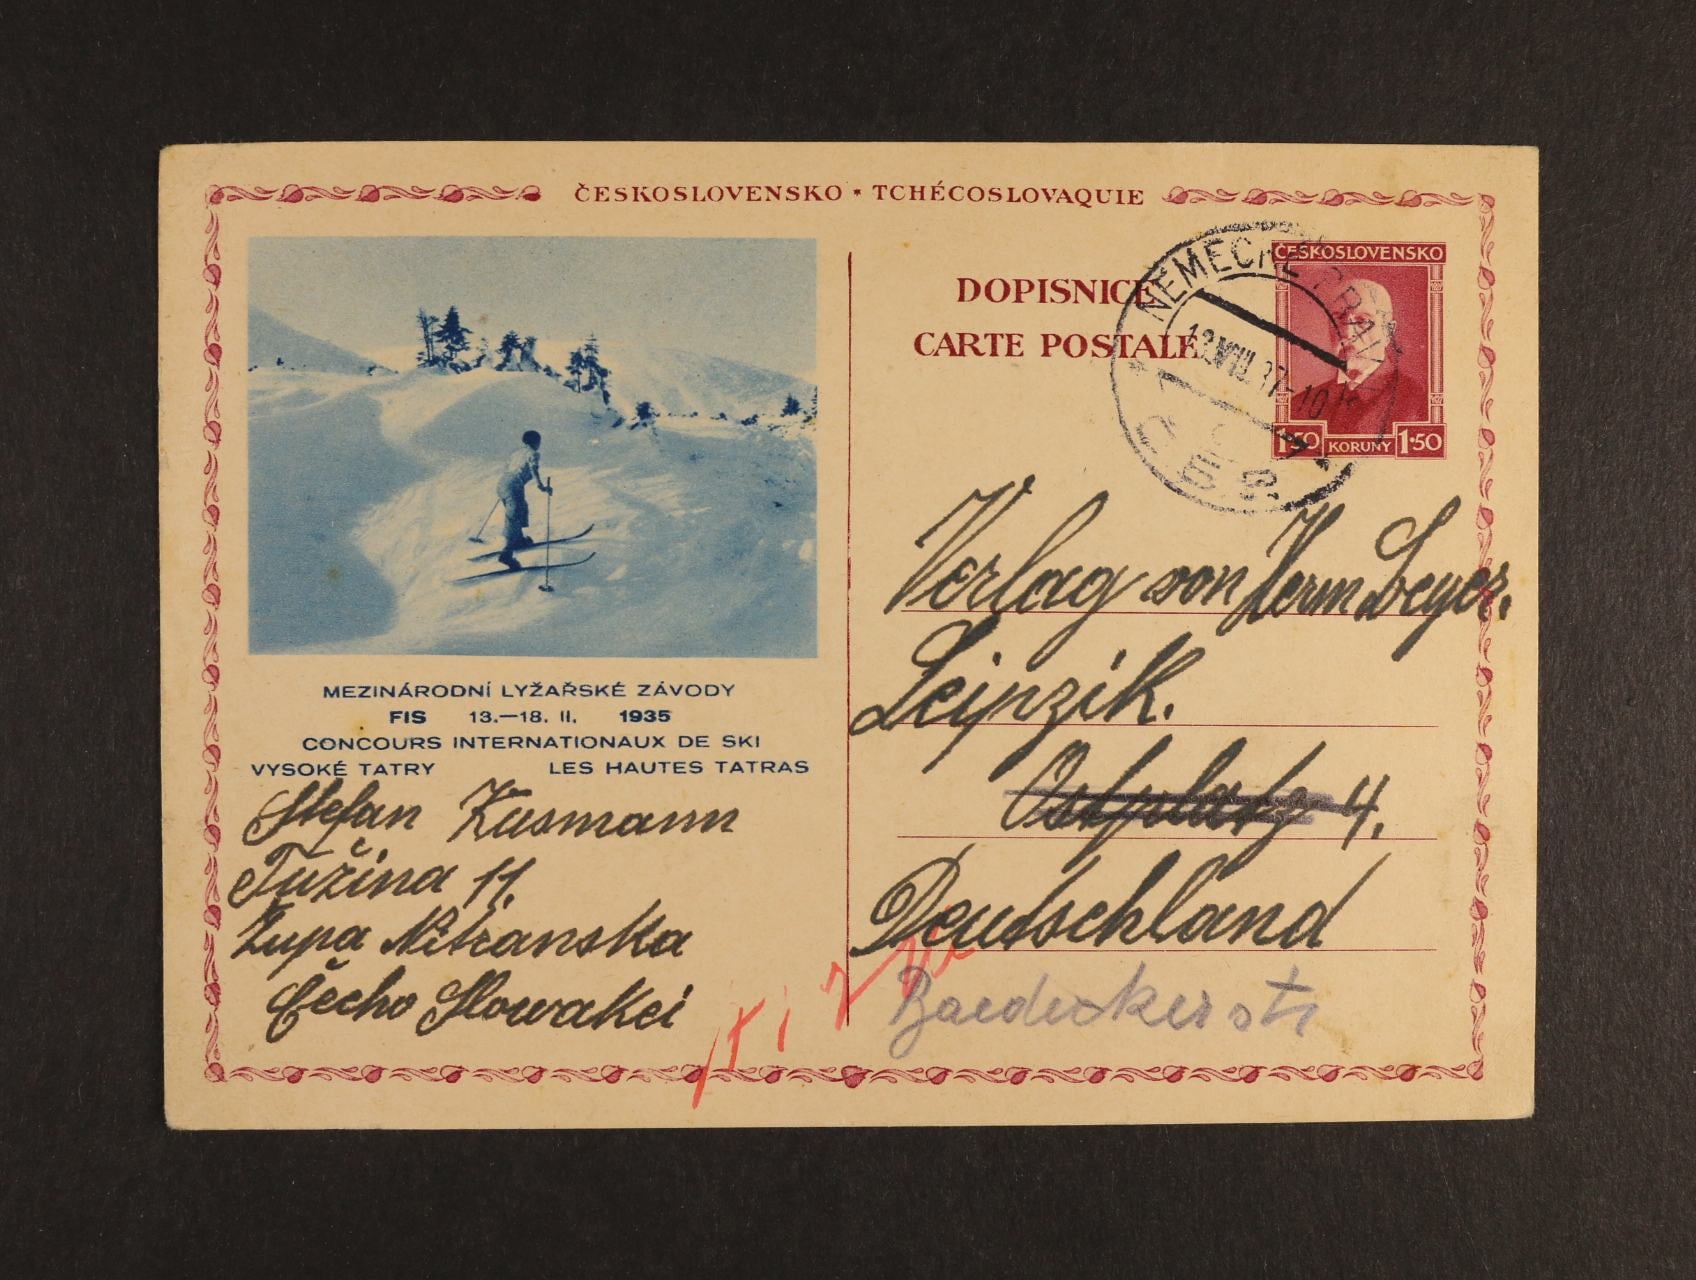 ČESKOSLOVENSKO * TCHÉCOSLOVAQUIE
DOPISNICE
CARTE POSTALE
NĚMECKÉ PRAV
ČESKOSLOVENSKO
1·50 KORUNY 1·50
MEZINÁRODNÍ LYŽAŘSKÉ ZÁVODY
FIS 13.—18. II. 1935
CONCOURS INTERNATIONAUX DE SKI
VYSOKÉ TATRY LES HAUTES TATRAS
Stefan Kusmann
Tužina 11.
Župa Nitranska
Čecho Slowakei
Verlag von Herm Beyer.
Leipzik.
Ostplatz 4.
Deutschland
Baedeckerstr